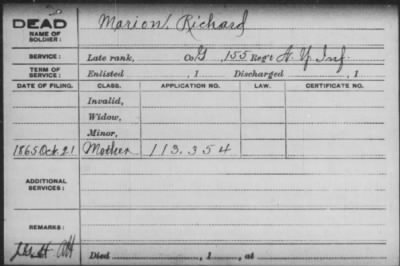 DEAD Marion, Richard
NAME OF SOLDIER:
SERVICE: Late rank, Co. G, 155 Reg't N.Y. Inf
TERM OF SERVICE: Enlisted , 1 Discharged , 1
DATE OF FILING. CLASS. APPLICATION NO. LAW. CERTIFICATE NO.
Invalid,
Widow,
Minor,
1865 Oct. 21 Mother 113.354
ADDITIONAL SERVICES:
REMARKS:
Died , 1 , at